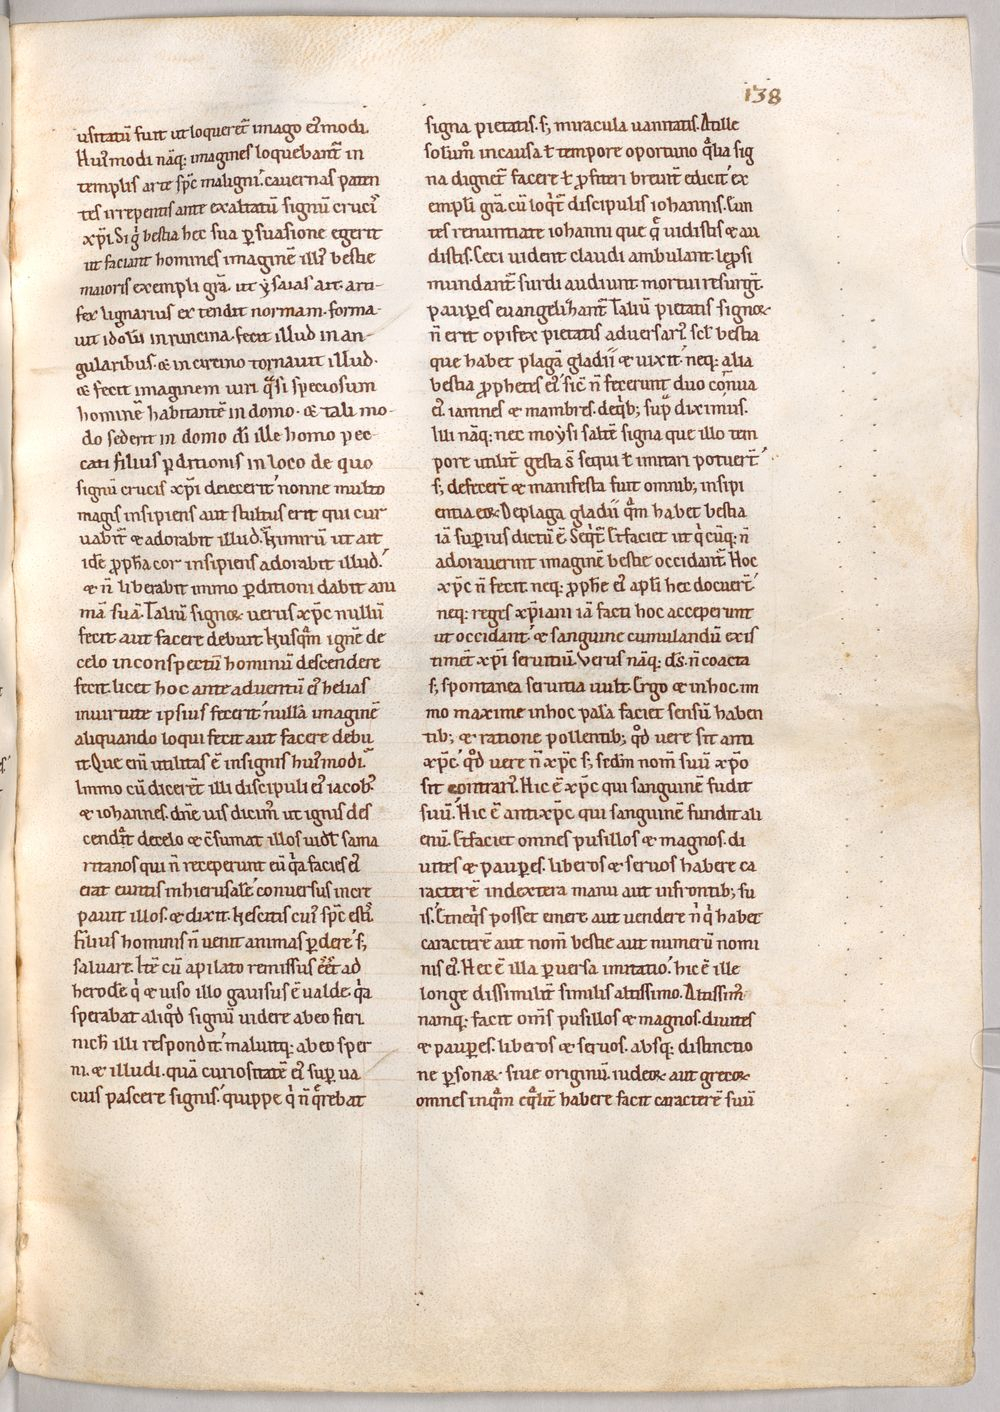 138
usitatū fuit ut loqueret̄ imago ei᷒modi.
Hui᷒modi nāq; imagines loquebant̄ in
templis arte sp̄c maligni. cauernas paten
tes irrepentis ante exaltatū signū cruci᷒
xp̄i. Si g̊ bestia hec sua ꝑsuasione egerit
ut faciant homines imaginē illi᷒ bestie
maioris exempli gr̄a. ut ẏsaias ait. arti-
fex lignarius extendit normam. forma-
uit idolū in runcina. fecit illud in an-
gularibus. & in circino tornauit illud.
& fecit imaginem uiri q̄si speciosum
hominē habitantē in domo. & tali mo-
do sederit in domo dī ille homo pec-
cati filius ꝑditionis in loco de quo
signū crucis xp̄i deiecerit. nonne multo
magis insipiens aut stultus erit qui cur
uabit̄ & adorabit illud. Nimirū ut ait
idē ꝓph̄a cor insipiens adorabit illud.
& n̄ liberabit immo ꝑditioni dabit ani
mā suā. Taliū signoꝝ uerus xp̄c nullū
fecit aut facere debuit. Nusq̄m ignē de
celo in conspectū hominū descendere
fecit. licet hoc ante aduentū ei᷒ helias
in uirtute ipsius fecerit. nullā imaginē
aliquando loqui fecit aut facere debu
it. Que eni᷒ utilitas ē in signis hui᷒modi.
Immo cū dicerēt illi discipuli ei᷒ iacob᷒
& iohannes. dn̄e uis dicim᷒ ut ignis des
cendat de celo & c̄sumat illos uidꝫ sama
ritanos qui n̄ receperunt eū q̄a facies ei᷒
erat euntis in hierusalē. conuersus incre
pauit illos. & dixit. Nescitis cui᷒ sp̄c estis.
Filius hominis n̄ uenit animas ꝑdere. sꝫ
saluare. Itē cū a pilato remissus ēēt ad
herodē. q̇ & uiso illo gauisus ē ualde. q̄a
sperabat aliq̊d signū uidere ab eo fieri.
nich̄ illi respondit. maluitq; ab eo sper
ni. & illudi. quā curiositatē ei᷒ suꝑ ua
cuis pascere signis. quippe q̇ n̄ q̄rebat
signa pietatis. sꝫ miracula uanitatis. At ille
solūm in causa ł tempore oportuno q̄lia sig
na dignet̄ facere ł ꝓfiteri breuit̄ edicit. ex
empli gr̄a. cū loq̇t̄ discipulis iohannis. Eun
tes renuntiate iohanni que q̄ uidistis & au
distis. Ceci uident claudi ambulant. leprosi
mundant̄ surdi audiunt. mortui resurgt̄.
pauꝑes euangelizant̄. Taliū pietatis signoꝝ
n̄ erit opifex pietatis aduersari᷒ scł bestia
que habet plagā gladii & uixit. neq; alia
bestia ꝓphetes ei᷒. sic̄ n̄ fecerunt duo cōnua
ei᷒. iamnes & mambres. de q̇bꝫ sup̄ diximus.
Illi nāq; nec moẏsi saltē signa que illo tem
pore utilit̄ gesta s̄ sequi ł imitari potuert̄.
sꝫ defecert̄ & manifesta fuit omnibꝫ insipi
entia eoꝝ. De plaga gladii q̄m habet bestia
iā superius dictū ē. Seq̇t̄. Et faciet ut q̇cūq; n̄
adorauerint imaginē bestie occidant̄. Hoc
xp̄c n̄ fecit. neq; ꝓph̄e ei᷒ apl̄i hec docuert̄.
neq; reges xp̄iani iā facti hoc acceperunt
ut occidant. & sanguine cumulandū exis
timēt xp̄i seruitiū. Verus nāq; d̄s. n̄ coacta
sꝫ spontanea seruitia uult. Ergo & in hoc im
mo maxime in hoc palā faciet sensū haben
tibꝫ & ratione pollentibꝫ q̊d uere sit anti
xp̄c. q̊d uere n̄ xp̄c sꝫ scd̄m nom̄ suū xp̄o
sit contrari᷒. Hic ē xp̄c qui sanguinē fudit
suū. Hic ē antixp̄c qui sanguinē fundit ali
enū. Et faciet omnes pusillos & magnos. di
uites & pauꝑes. liberos & seruos habere ca
racterē in dextera manu aut in frontibꝫ su
is. Et neq̇s posset emere aut uendere n̄ q̇ habet
caracterē aut nom̄ bestie aut numerū nomi
nis ei᷒. Hec ē illa ꝑuersa imitatio. hic ē ille
longe dissimilit̄ similis altissimo. Altissim᷒
namq; facit om̄s pusillos & magnos. diuites
& pauꝑes. liberos & seruos. absq; distinctio
ne ꝑsonaꝝ siue originū. iudeoꝝ aut grecoꝝ
omnes inq̄m eq̄lit̄ habere facit caracterē suū